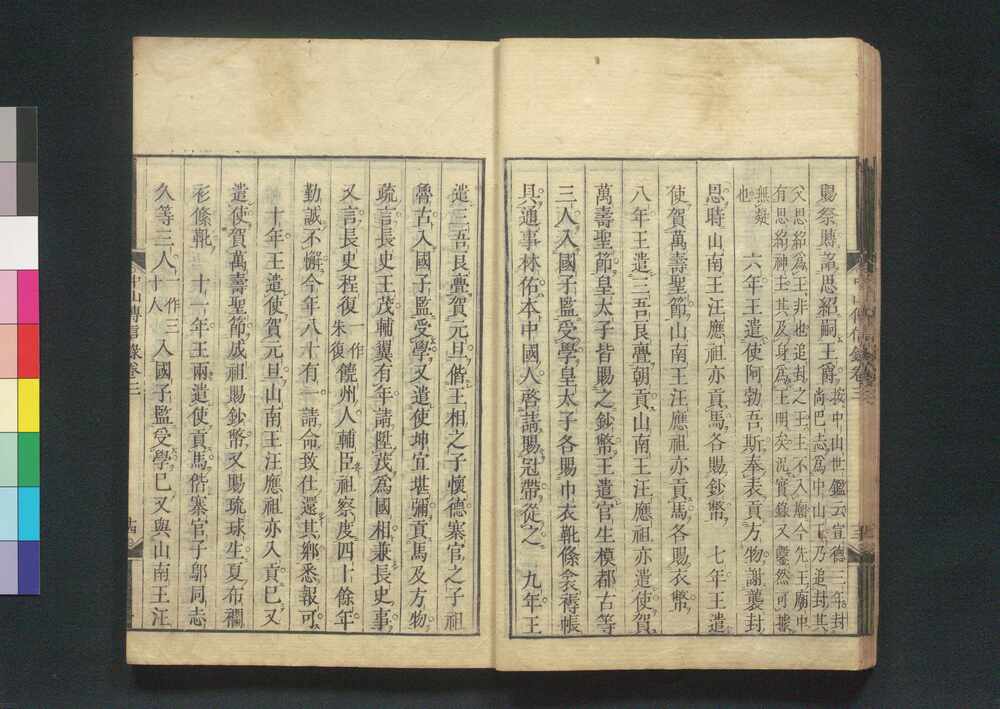 賜祭賻詔思紹嗣王爵按中山世鑑云宣德三年封
尚巴志爲中山王乃追封其
父思紹爲王非也追封之王主不入廟今先王廟中
有思紹神主其及身爲王明矣况實錄又鑿然可據
無疑
也　六年王遣使阿勃吾斯奉表貢方物謝襲封
恩時山南王汪應祖亦貢馬各賜鈔幣　七年王遣
使賀萬壽聖節山南王汪應祖亦貢馬各賜衣幣
八年王遣三吾良亹朝貢山南王汪應祖亦遣使賀
萬壽聖節皇太子皆賜之鈔幣王遣官生模都古等
三人入國子監受學皇太子各賜巾衣靴絛衾褥帳
具通事林佑本中國人啓請賜冠帶從之　九年王
遣三吾良亹賀元旦偕王相之子懷德寨官之子祖
魯古入國子監受學又遣使坤宜堪彌貢馬及方物
疏言長史王茂輔翼有年請陞茂爲國相兼長史事
又言長史程復一作
朱復饒州人輔臣祖察度四十餘年
勤誠不懈今年八十有一請命致仕還其鄉悉報可
十年王遣使賀元旦山南王汪應祖亦入貢已又
遣使賀萬壽聖節成祖賜鈔幣又賜琉球生夏布襴
衫絛靴　十一年王兩遣使貢馬偕寨官子鄔同志
久等三人一作三
十人入國子監受學已又與山南王汪
中山傳信錄卷三
中山傳信錄卷三